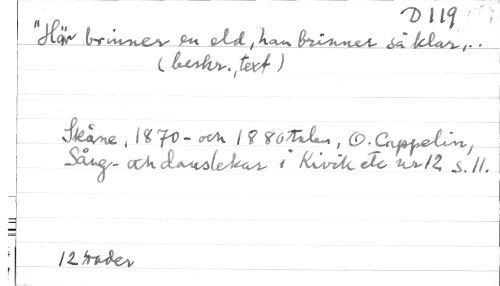 D 119
"Här brinner en eld, han brinner så klar,..
(beskr., text)
Skåne, 1870- och 1880talen, O. Cappelin,
Sång- och danslekar i Kivik etc nr 12 s. 11.
12 rader